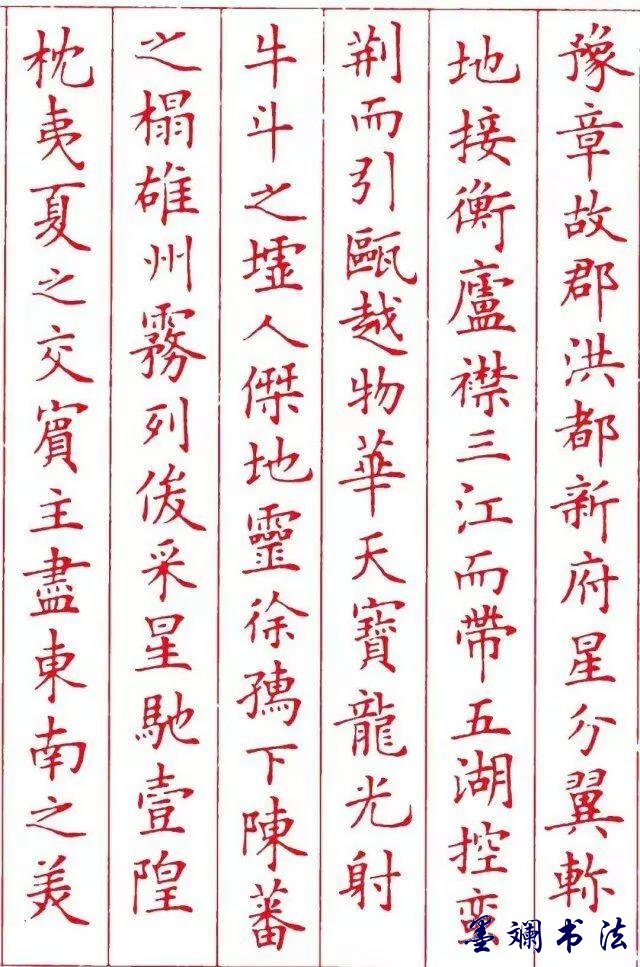 豫章故郡洪都新府星分翼軫
地接衡廬襟三江而帶五湖控蛮
荆而引甌越物華天寶龍光射
牛斗之墟人傑地靈徐孺下陳蕃
之榻雄州霧列俊采星馳臺隍
枕夷夏之交賓主盡東南之美
墨斓书法